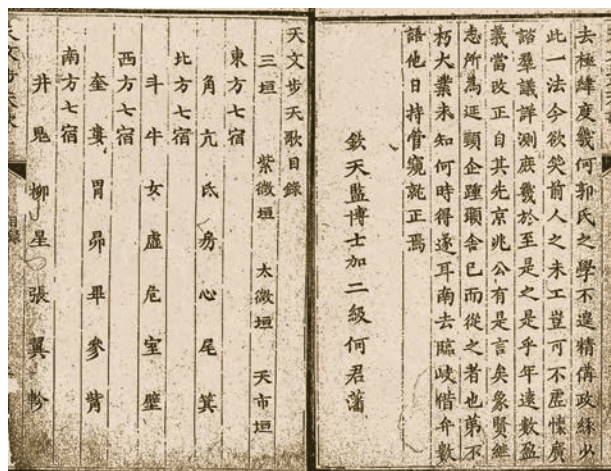 去極緯度幾何郭氏之學不遑精傋政絲必
此一法今欲笑前人之未工豈可不虛懷廣
諮羣議詳測庶幾於至是之是乎年遠數盈
義當改正自其先京兆公有是言矣象賢繼
志所為延頸企踵願舍已而從之者也弟不
朽大業未知何時得遂耳南去臨岐惜介數
語他日持管窺就正焉
欽天監博士加二級何君藩
天文步天歌目錄
三垣 紫微垣 太微垣 天市垣
東方七宿
角 亢 氐 房 心 尾 箕
北方七宿
斗 牛 女 虛 危 室 壁
西方七宿
奎 婁 胃 昴 畢 參 觜
南方七宿
井 鬼 柳 星 張 翼 軫
目錄